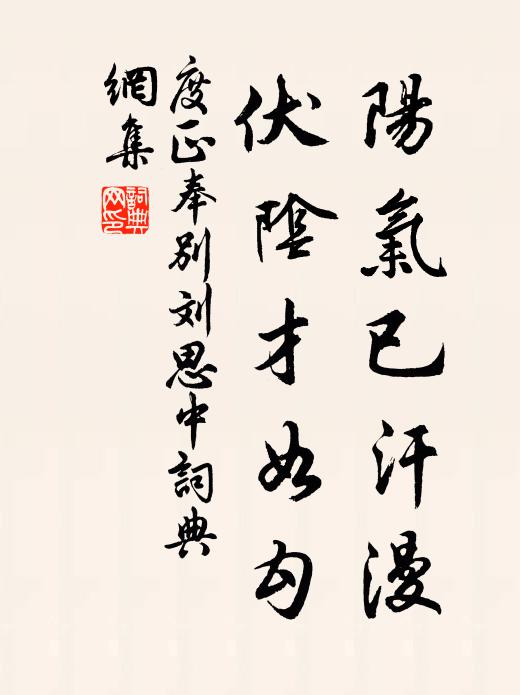 陽氣已汗漫
伏陰才如勾
度正奉别刘思中詞典
網集
詞典
网印